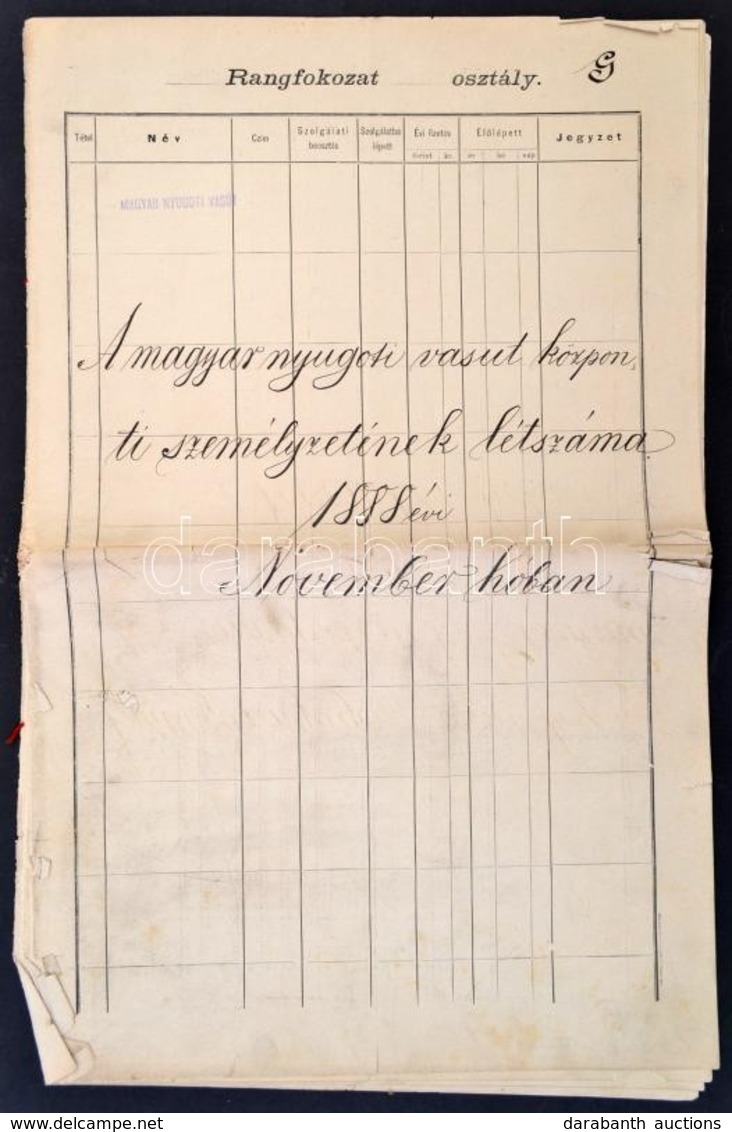 Rangfokozat osztály. G
Tétel Név Czim Szolgálati beosztás Szolgálatba lépett Évi fizetés Előlépett Jegyzet
forint kr. év hó nap
MAGYAR NYUGOTI VASÚT
A magyar nyugoti vasut közpon,
ti személyzetének létszáma
1888 évi
November hóban
darabanth
darabanth auctions